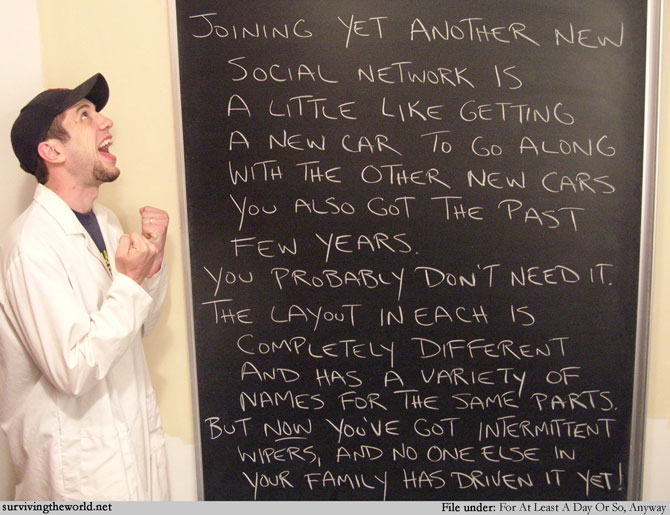 JOINING YET ANOTHER NEW
SOCIAL NETWORK IS
A LITTLE LIKE GETTING
A NEW CAR TO GO ALONG
WITH THE OTHER NEW CARS
YOU ALSO GOT THE PAST
FEW YEARS.
YOU PROBABLY DON'T NEED IT.
THE LAYOUT IN EACH IS
COMPLETELY DIFFERENT
AND HAS A VARIETY OF
NAMES FOR THE SAME PARTS.
BUT NOW YOU'VE GOT INTERMITTENT
WIPERS, AND NO ONE ELSE IN
YOUR FAMILY HAS DRIVEN IT YET!
survivingtheworld.net
File under: For At Least A Day Or So, Anyway